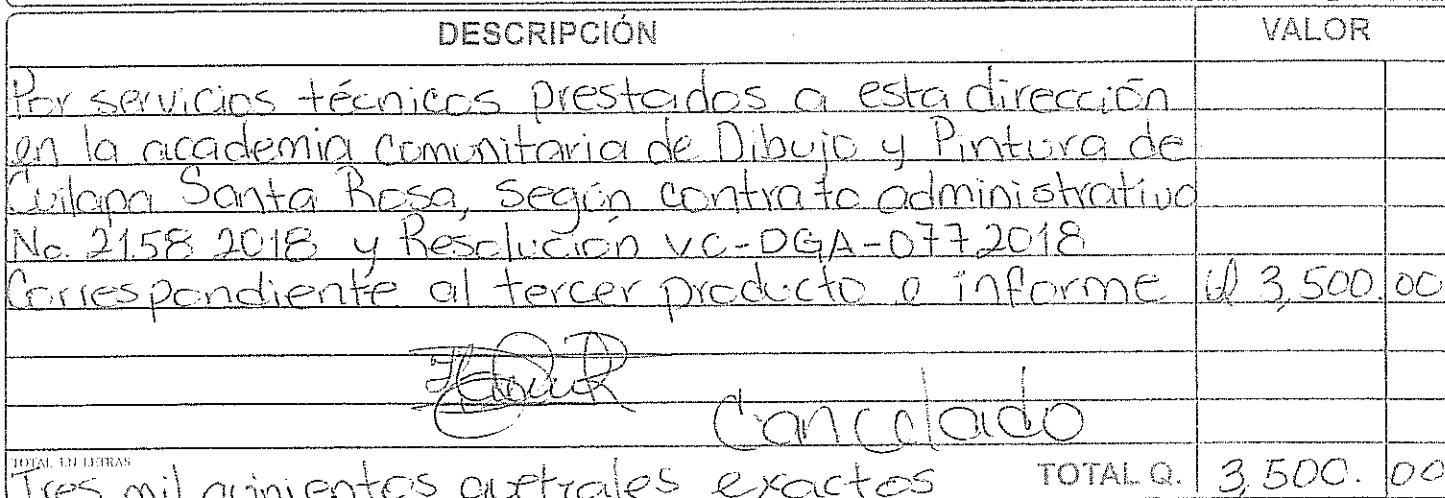 DESCRIPCIÓN VALOR
Por servicios técnicos prestados a esta dirección
en la academia comunitaria de Dibujo y Pintura de
Cuilapa Santa Rosa, según contrato administrativo
No. 2158 2018 y Resolución VC-DGA-077 2018
Correspondiente al tercer producto e informe Q 3,500.00
Cancelado
TOTAL EN LETRAS
Tres mil quinientos quetzales exactos TOTAL Q. 3,500.00